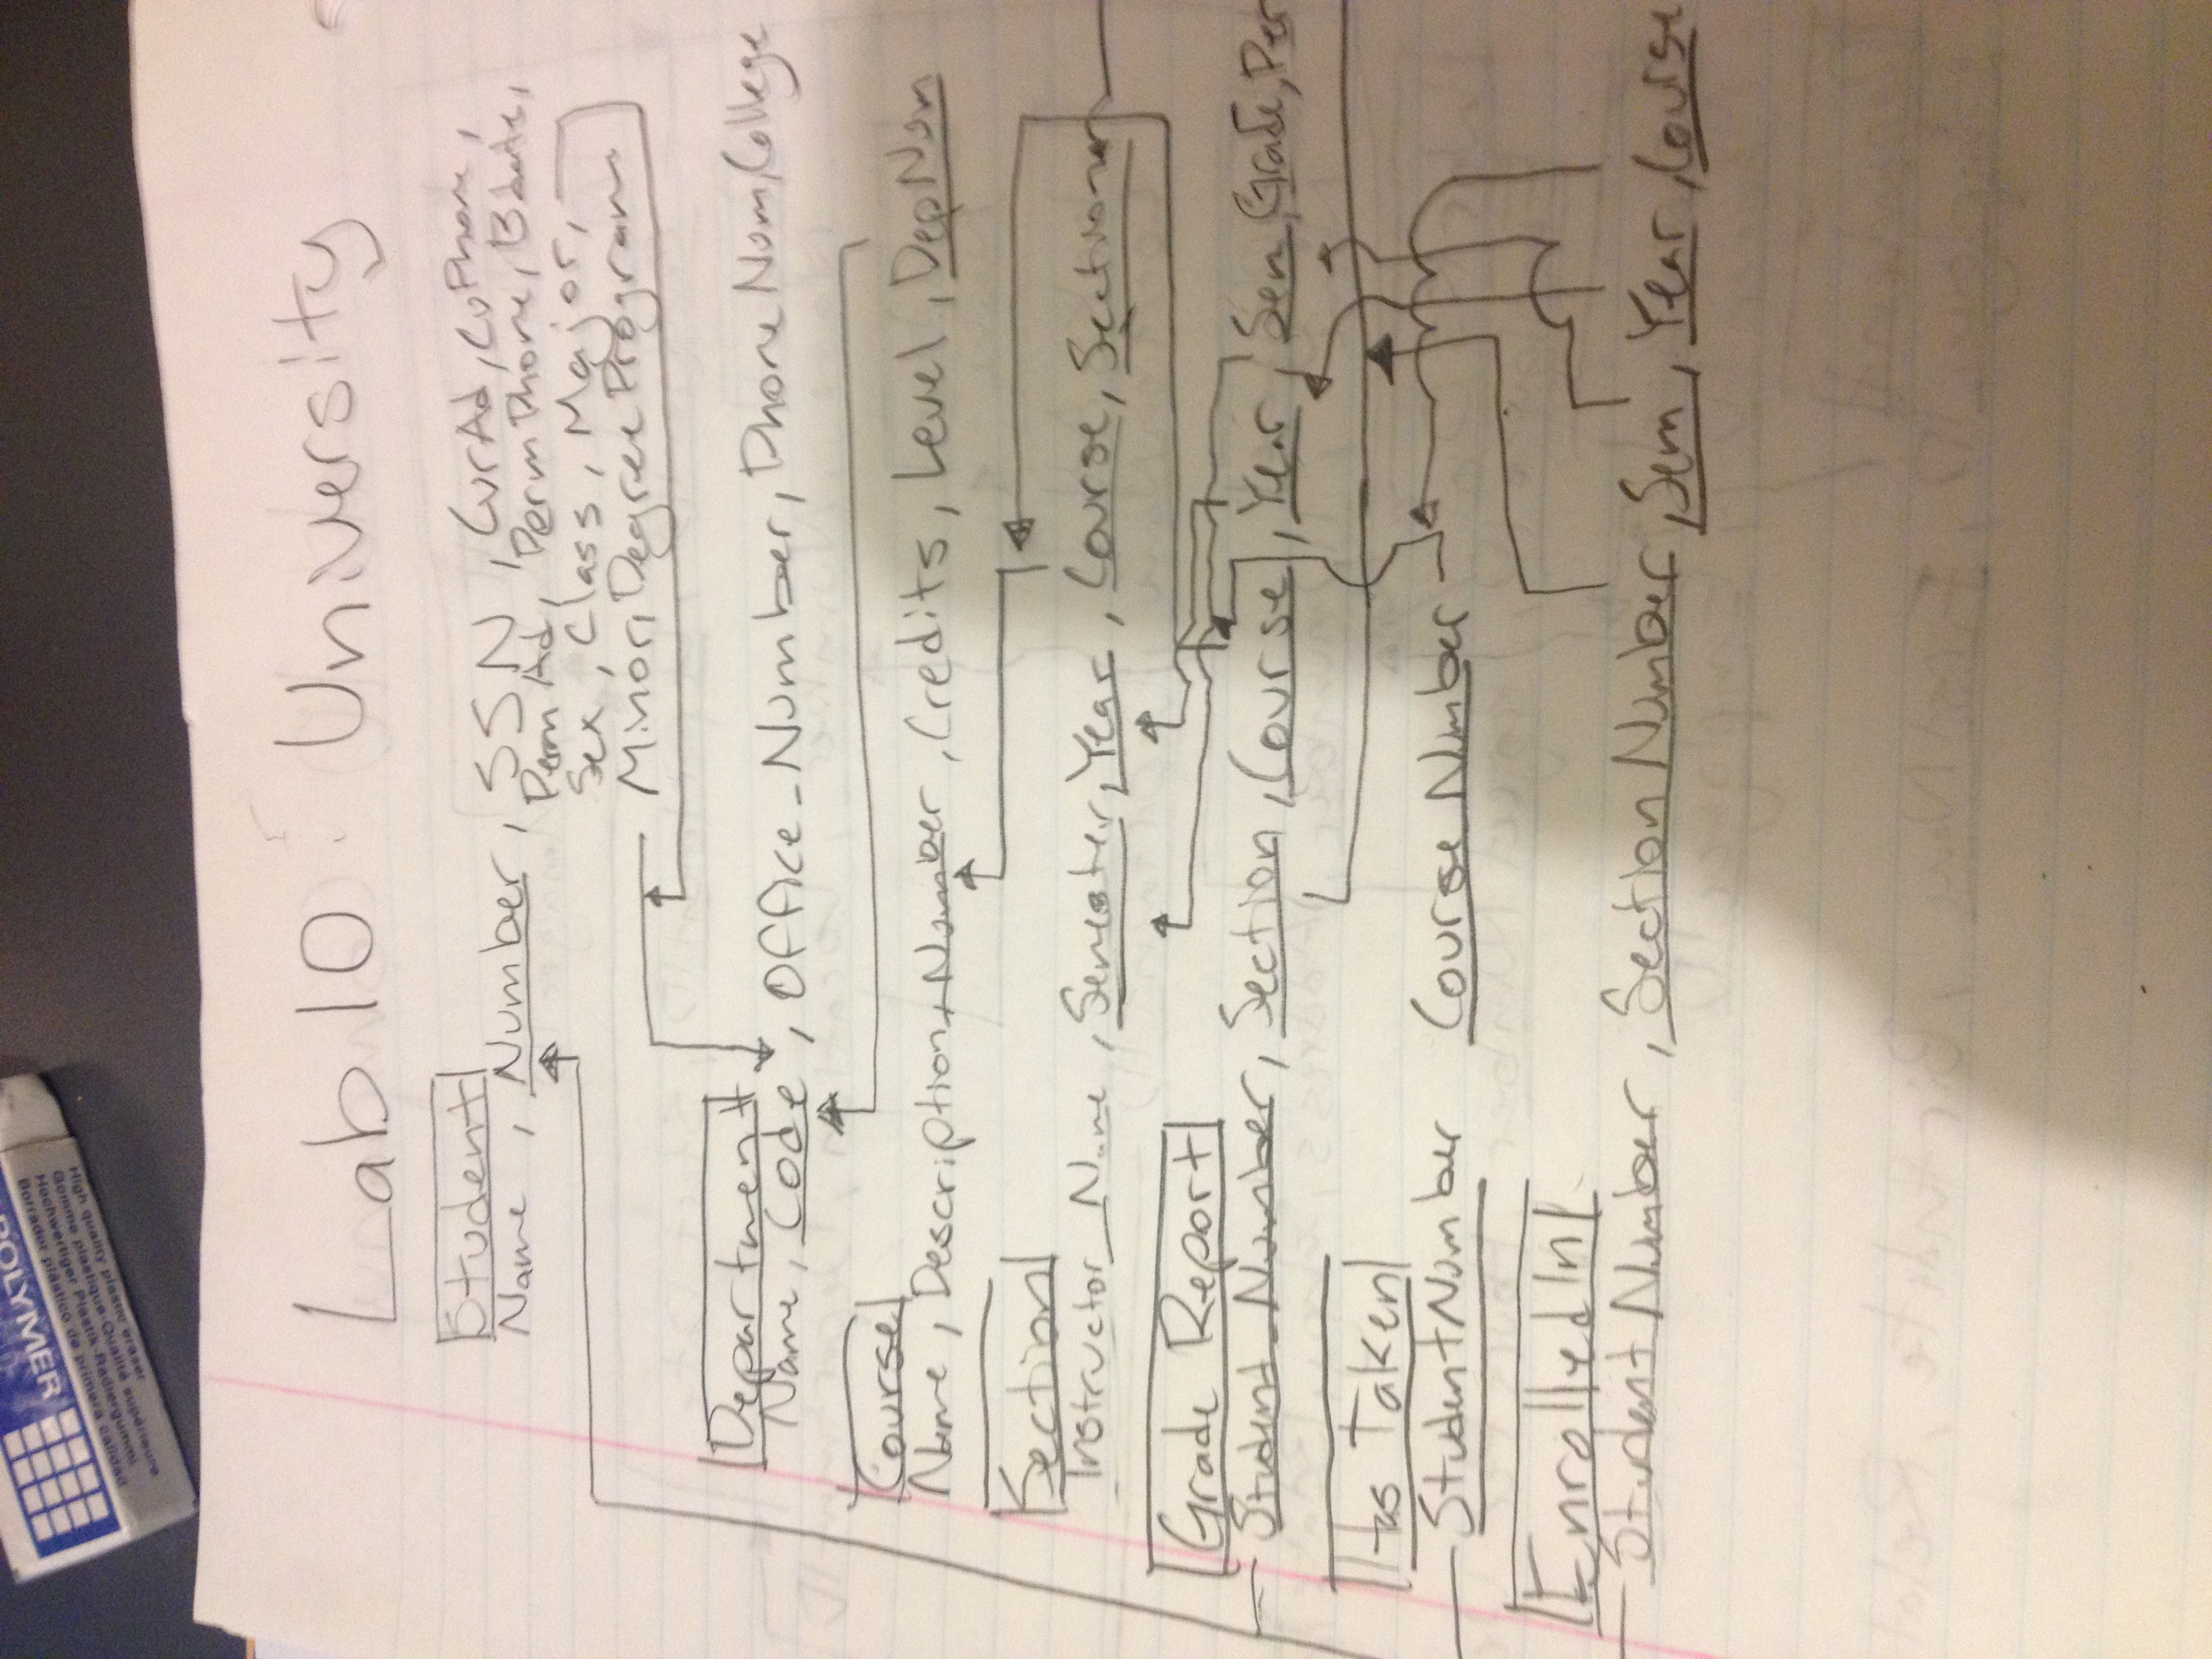 POLYMER
High quality plastic eraser
Gomme plastique-Qualité supérieure
Hochwertiger Plastik-Radiergummi
Borrador plástico de primera calidad
Lab 10 : University
Student
Name , Number , SSN , CurAd , CuPhone ,
Perm Ad, PermPhone, Bdate,
Sex , Class , Major,
Minor, Degree Program
Department
Name, Code , Office_Number, PhoneNum, College
Course
Name , Description, Number , Credits, Level , DepNum
Section
Instructor_Name , Semester, Year , Course, Section
Grade Report
Student_Number, Section , Course , Year , Sem, Grade, Per
Has Taken
StudentNumber Course Number
EnrolledIn
Student Number , Section Number , Sem , Year , Course